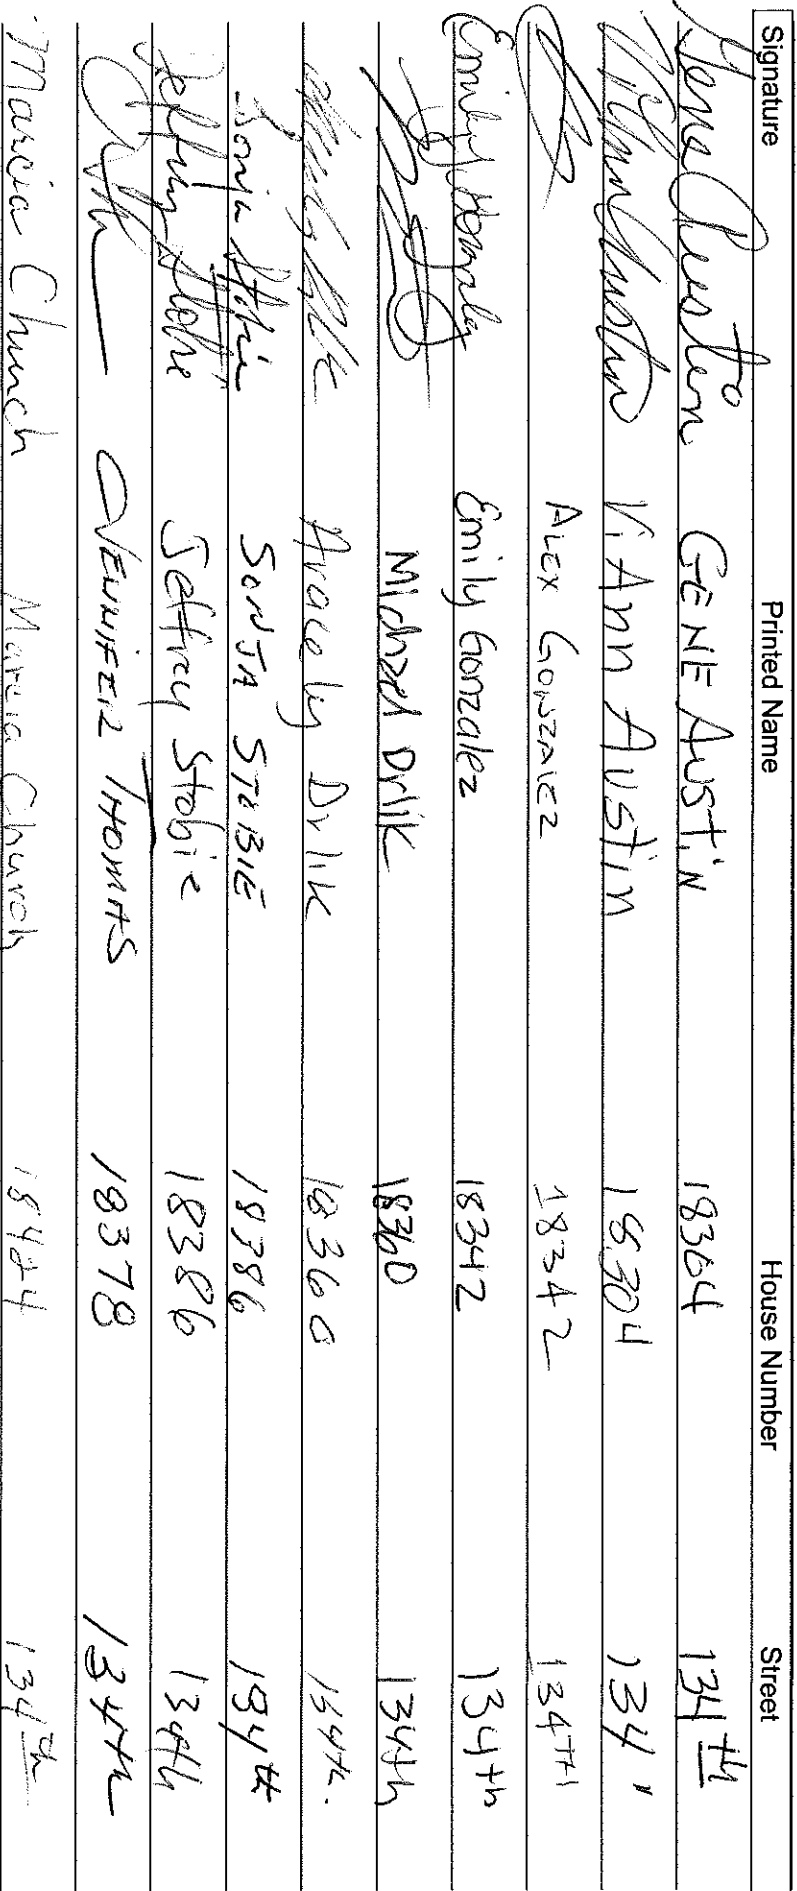 Signature Printed Name House Number Street
Gene Austin GENE AUSTIN 18304 134th
ViAnn Austin Vi Ann Austin 18304 134 "
ALEX GONZALEZ 18342 134TH
Emily Gonzalez Emily Gonzalez 18342 134th
Michael Drlik 18360 134th
Aracely Drlik 18360 134th.
Sonja Stobie SONJA STOBIE 18386 134th
Jeffrey Stobie Jeffrey Stobie 18386 134th
JENNIFER THOMAS 18378 134th
Marcia Church Marcia Church 18424 134th